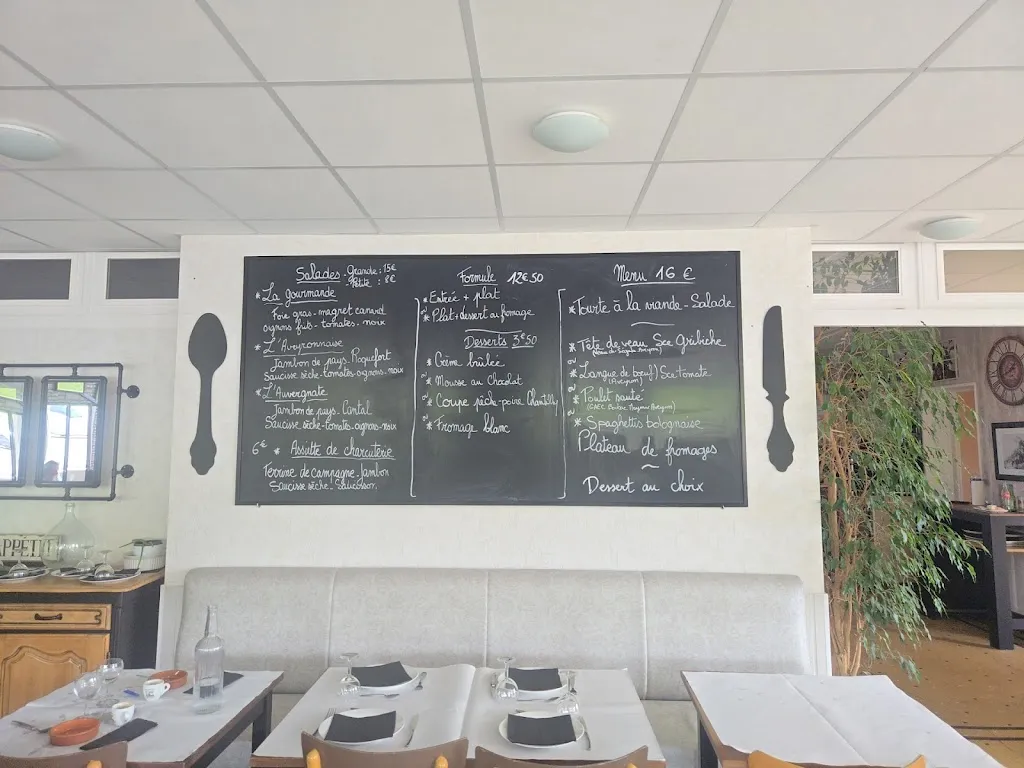 Salades - Grande : 15€
Petite : 8€
* La gourmande
Foie gras - magret canard
oignons frits - tomates - noix
* L'Aveyronnaise
Jambon de pays - Roquefort
Saucisse sèche - tomates - oignons - noix
* L'Auvergnate
Jambon de pays - Cantal
Saucisse sèche - tomates - oignons - noix
6€ * Assiette de charcuterie
Terrine de campagne - Jambon
Saucisse sèche - Saucisson
Formule 12€50
* Entrée + plat
* Plat + dessert ou fromage
Desserts 3€50
* Crème brûlée
* Mousse au chocolat
* Coupe pêche - poire Chantilly
* Fromage blanc
Menu 16 €
* Tourte à la viande - Salade
* Tête de veau Sce Gribiche
* Langue de bœuf Sce tomate
(Aveyron)
* Poulet sauté
* Spaghettis bolognaise
Plateau de fromages
Dessert au choix
APPETIT